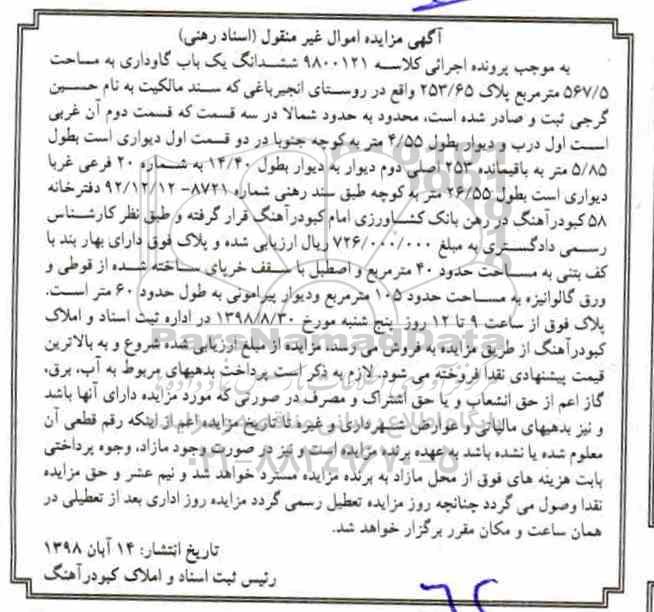 آگهی مزایده اموال غیر منقول (اسناد رهنی)
به موجب پرونده اجرائی کلاسه ۹۸۰۰۱۲۱ ششدانگ یک باب گاوداری به مساحت
۵۶۷/۵ مترمربع پلاک ۲۵۳/۶۵ واقع در روستای انجیرباغی که سند مالکیت به نام حسین
گرجی ثبت و صادر شده است، محدود به حدود شمالا در سه قسمت که قسمت دوم آن غربی
است اول درب و دیوار بطول ۴/۵۵ متر به کوچه جنوبا در دو قسمت اول دیواری است بطول
۵/۸۵ متر به باقیمانده ۲۵۳ اصلی دوم دیوار به دیوار بطول ۱۴/۴۰ به شماره ۲۰ فرعی غربا
دیواری است بطول ۲۶/۵۵ متر به کوچه طبق سند رهنی شماره ۸۷۲۱- ۹۲/۱۲/۱۲ دفترخانه
۵۸ کبودرآهنگ در رهن بانک کشاورزی امام کبودرآهنگ قرار گرفته و طبق نظر کارشناس
رسمی دادگستری به مبلغ ۷۲۶/۰۰۰/۰۰۰ ریال ارزیابی شده و پلاک فوق دارای بهار بند با
کف بتنی به مساحت حدود ۴۰ مترمربع و اصطبل با سقف خرپای ساخته شده از قوطی و
ورق گالوانیزه به مساحت حدود ۱۰۵ مترمربع ودیوار پیرامونی به طول حدود ۶۰ متر است.
پلاک فوق از ساعت ۹ تا ۱۲ روز پنج شنبه مورخ ۱۳۹۸/۸/۳۰ در اداره ثبت اسناد و املاک
کبودرآهنگ از طریق مزایده به فروش می رسد، مزایده از مبلغ ارزیابی شده شروع و به بالاترین
قیمت پیشنهادی نقدا فروخته می شود. لازم به ذکر است پرداخت بدهیهای مربوط به آب، برق،
گاز اعم از حق انشعاب و یا حق اشتراک و مصرف در صورتی که مورد مزایده دارای آنها باشد
و نیز بدهیهای مالیاتی و عوارض شهرداری و غیره تا تاریخ مزایده اعم از اینکه رقم قطعی آن
معلوم شده یا نشده باشد به عهده برنده مزایده است و نیز در صورت وجود مازاد، وجوه پرداختی
بابت هزینه های فوق از محل مازاد به برنده مزایده مسترد خواهد شد و نیم عشر و حق مزایده
نقدا وصول می گردد چنانچه روز مزایده تعطیل رسمی گردد مزایده روز اداری بعد از تعطیلی در
همان ساعت و مکان مقرر برگزار خواهد شد.
تاریخ انتشار: ۱۴ آبان ۱۳۹۸
رئیس ثبت اسناد و املاک کبودرآهنگ
ParsNamadData
۰۲۱-۸۸۳۴۹۶۷۰-۵